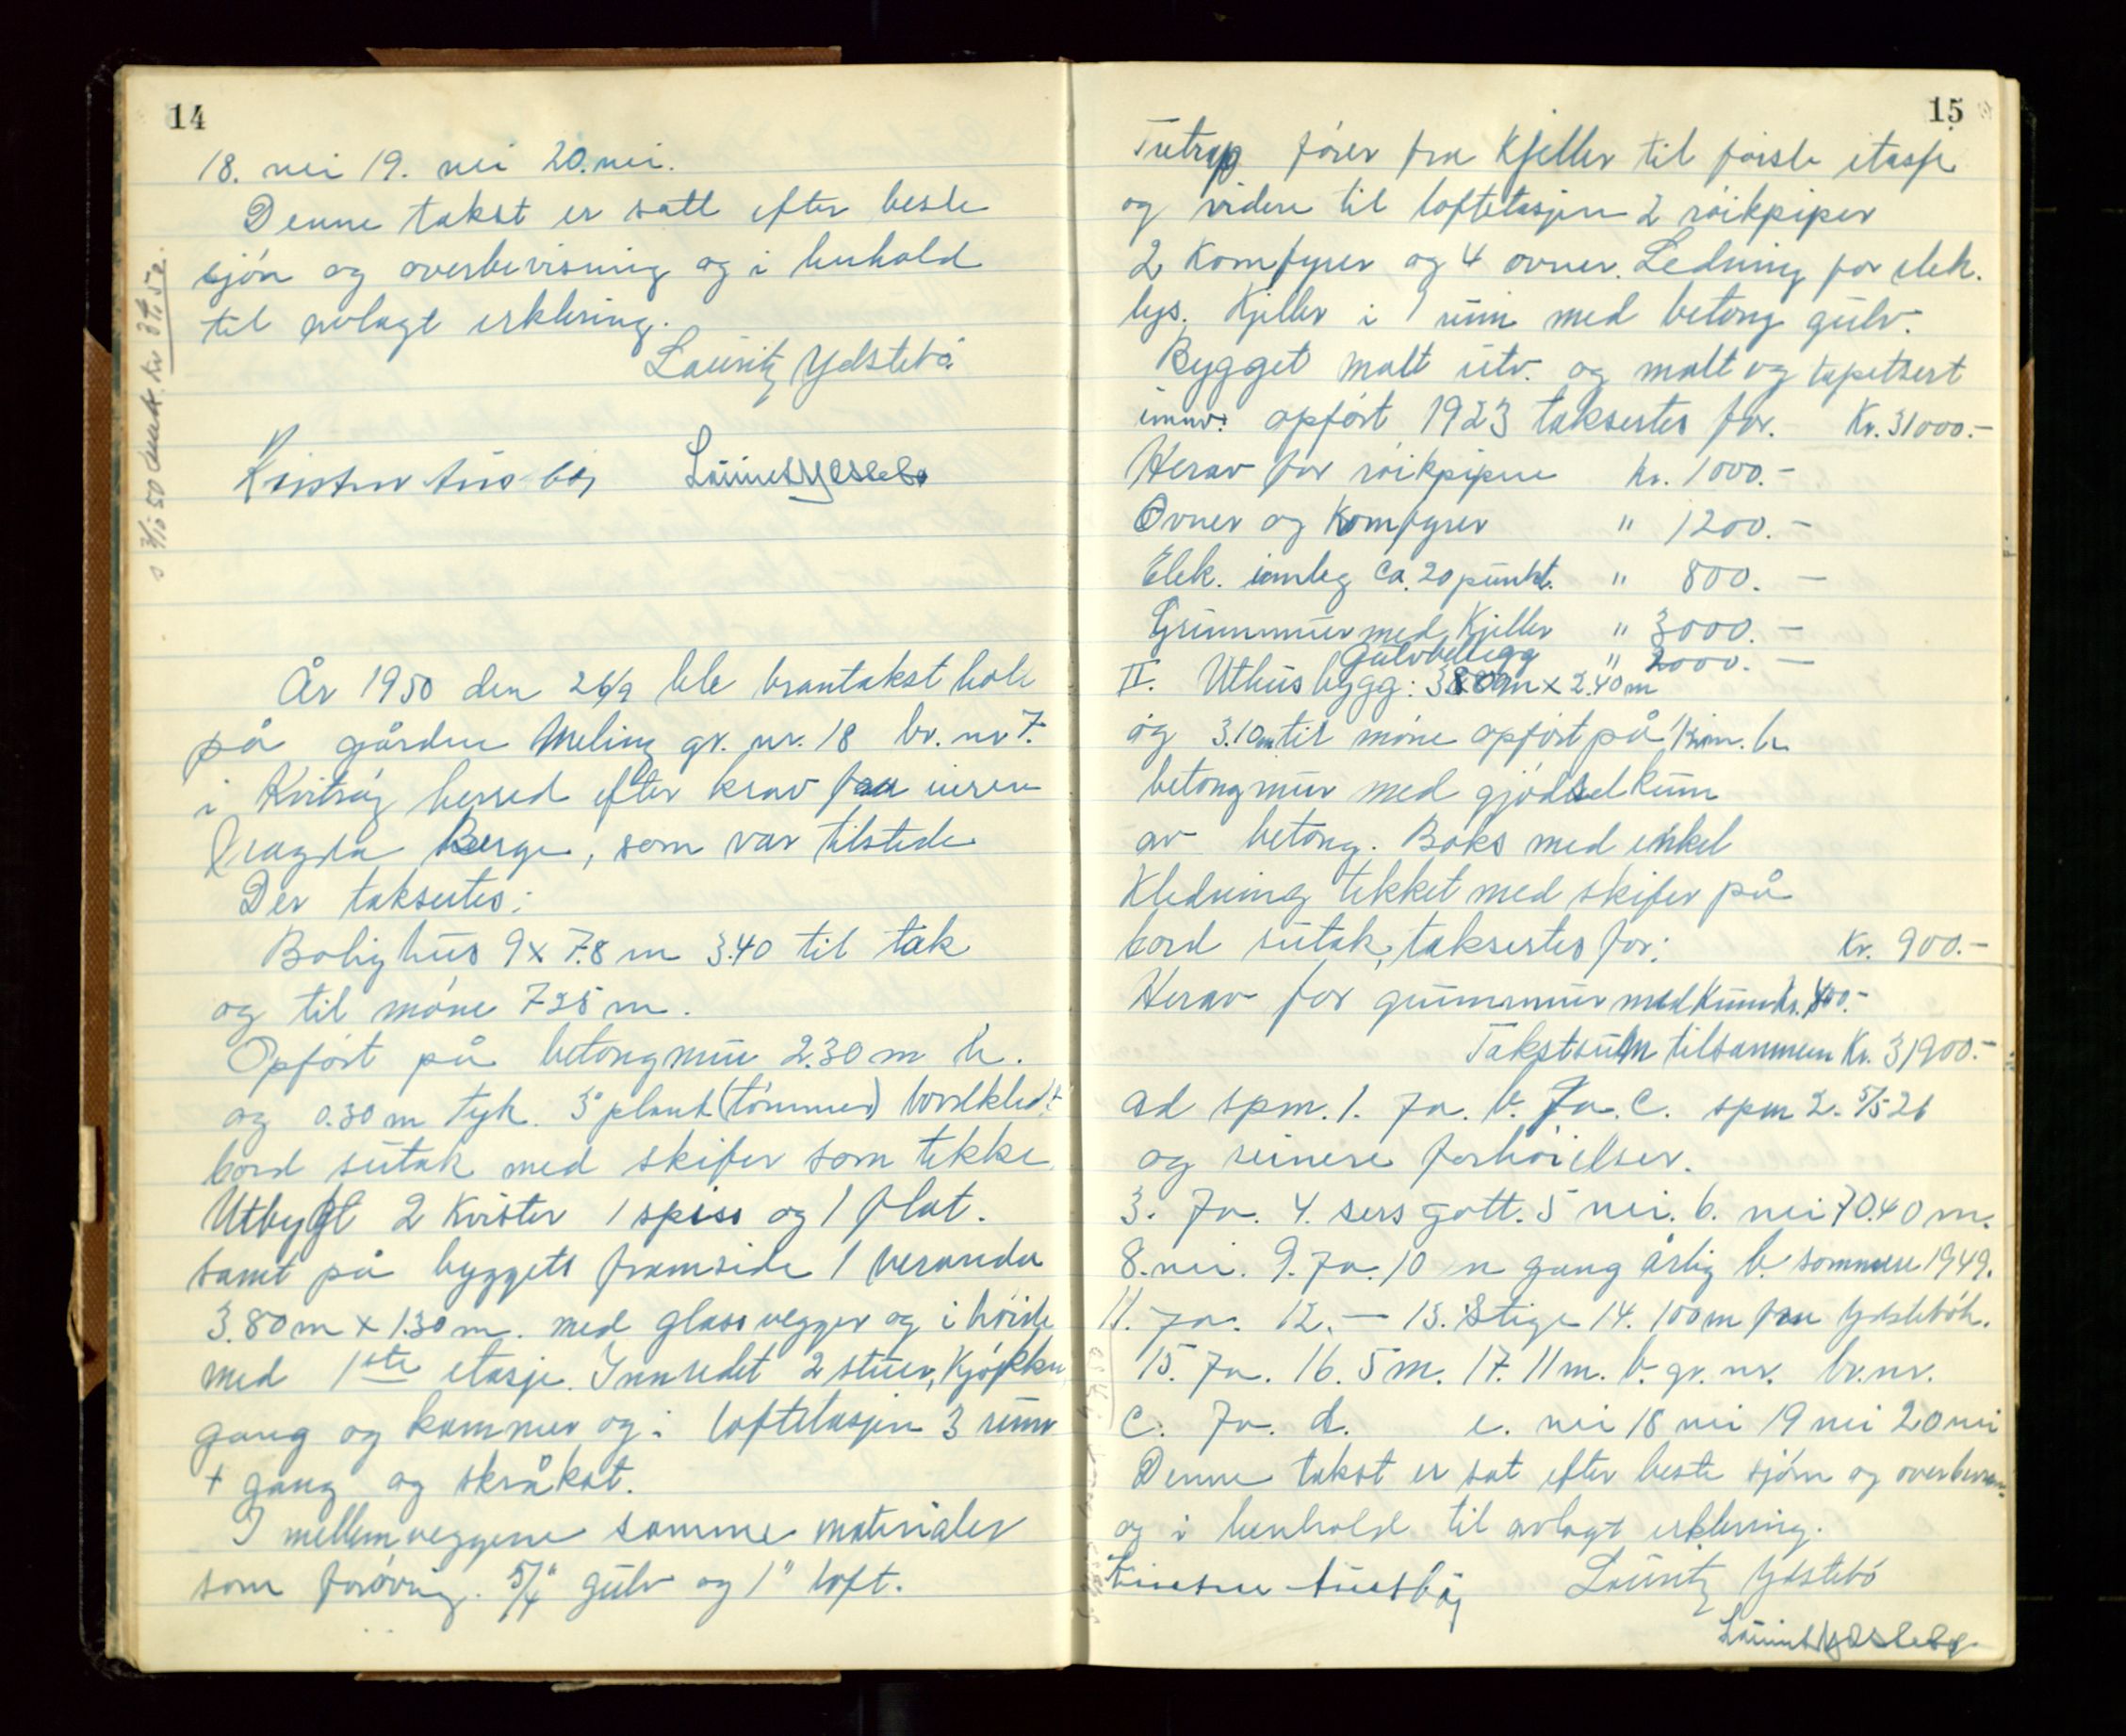 14
18. nei 19. nei 20. nei.
Denne takst er satt efter beste
sjön og overbevisning og i henhold
til avlagt erklering.
Lauritz Ydstebö.
Lauritz Ydstebö
År 1950 den 26/9 ble brantakst holt
på gården Meling gr. nr. 18 br. nr 7.
i Kvitsöy herred efter krav fra eieren
Berge, som var tilstede
Der takseres:
Bolighus 9 x 7.8 m 3.40 til tak
og til möne 7.25 m.
Opfört på betongmur 2.30 m h.
og 0.30 m tyk. 3" plank (tömmer) bordkledt
bord sutak med skifer som tekke
Utbygt 2 Kvister 1 spiss og 1 flat.
samt på byggets framside 1 veranda
3.80 m x 1.30 m. med glassvegger og i höide
med 1ste etasje. Innredet 2 stuer, Kjökken,
gang og kammer og i loftetasjen 3 rum
+ gang og skråkot.
I mellemveggene samme materialer
som forövrig. 5/4" gulv og 1" loft.
15
Tretrap förer fra Kjeller til förste etasje
og videre til loftetasjen 2 röikpiper
2 Komfyrer og 4 ovner. Ledning for elek.
lys. Kjeller i 1 rum med betong gulv.
Bygget malt utv. og malt og tapetsert
innv. opfört 1923 takseres for. Kr. 31000.-
Herav for röikpipene Kr. 1000.-
Ovner og Komfyrer " 1200.-
Elek. innleg ca. 20 punkt. " 800.-
Grunnmur med Kjeller " 3000.-
Gulvbelegg " 2000.-
II. Uthusbygg: 3.80m x 2.40 m
og 3.10m til möne opfört på 1 h.
betongmur med gjödselkum
av betong. Boks med enkel
Kledning tekket med skifer på
bord sutak, takseres for: Kr. 900.-
Herav for grunnmur med Kum Kr. 400.-
Takstsum tilsammen Kr. 31900.-
ad spm. 1. Ja. b. Ja. c. spm 2. 5/5 26
og seinere forhöielser.
3. Ja. 4. sers gott. 5 nei. 6. nei 7 0.40 m.
8. nei. 9. Ja. 10 n gang årlig b. sommeren 1949.
11. Ja. 12. — 13. Stige 14. 100m fra Ydsteböh.
15. Ja. 16. 5 m. 17. 11 m. b. gr. nr. br. nr.
c. Ja. d. e. nei 18 nei 19 nei 20 nei
Denne takst er sat efter beste sjöm og overbevisn.
og i henhold til avlagt erklering.
Lauritz Ydstebö
Lauritz Ydstebö